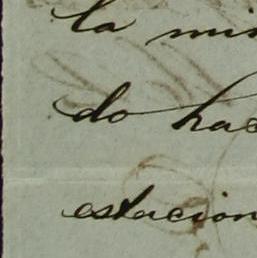 la mis
do hac
estacion